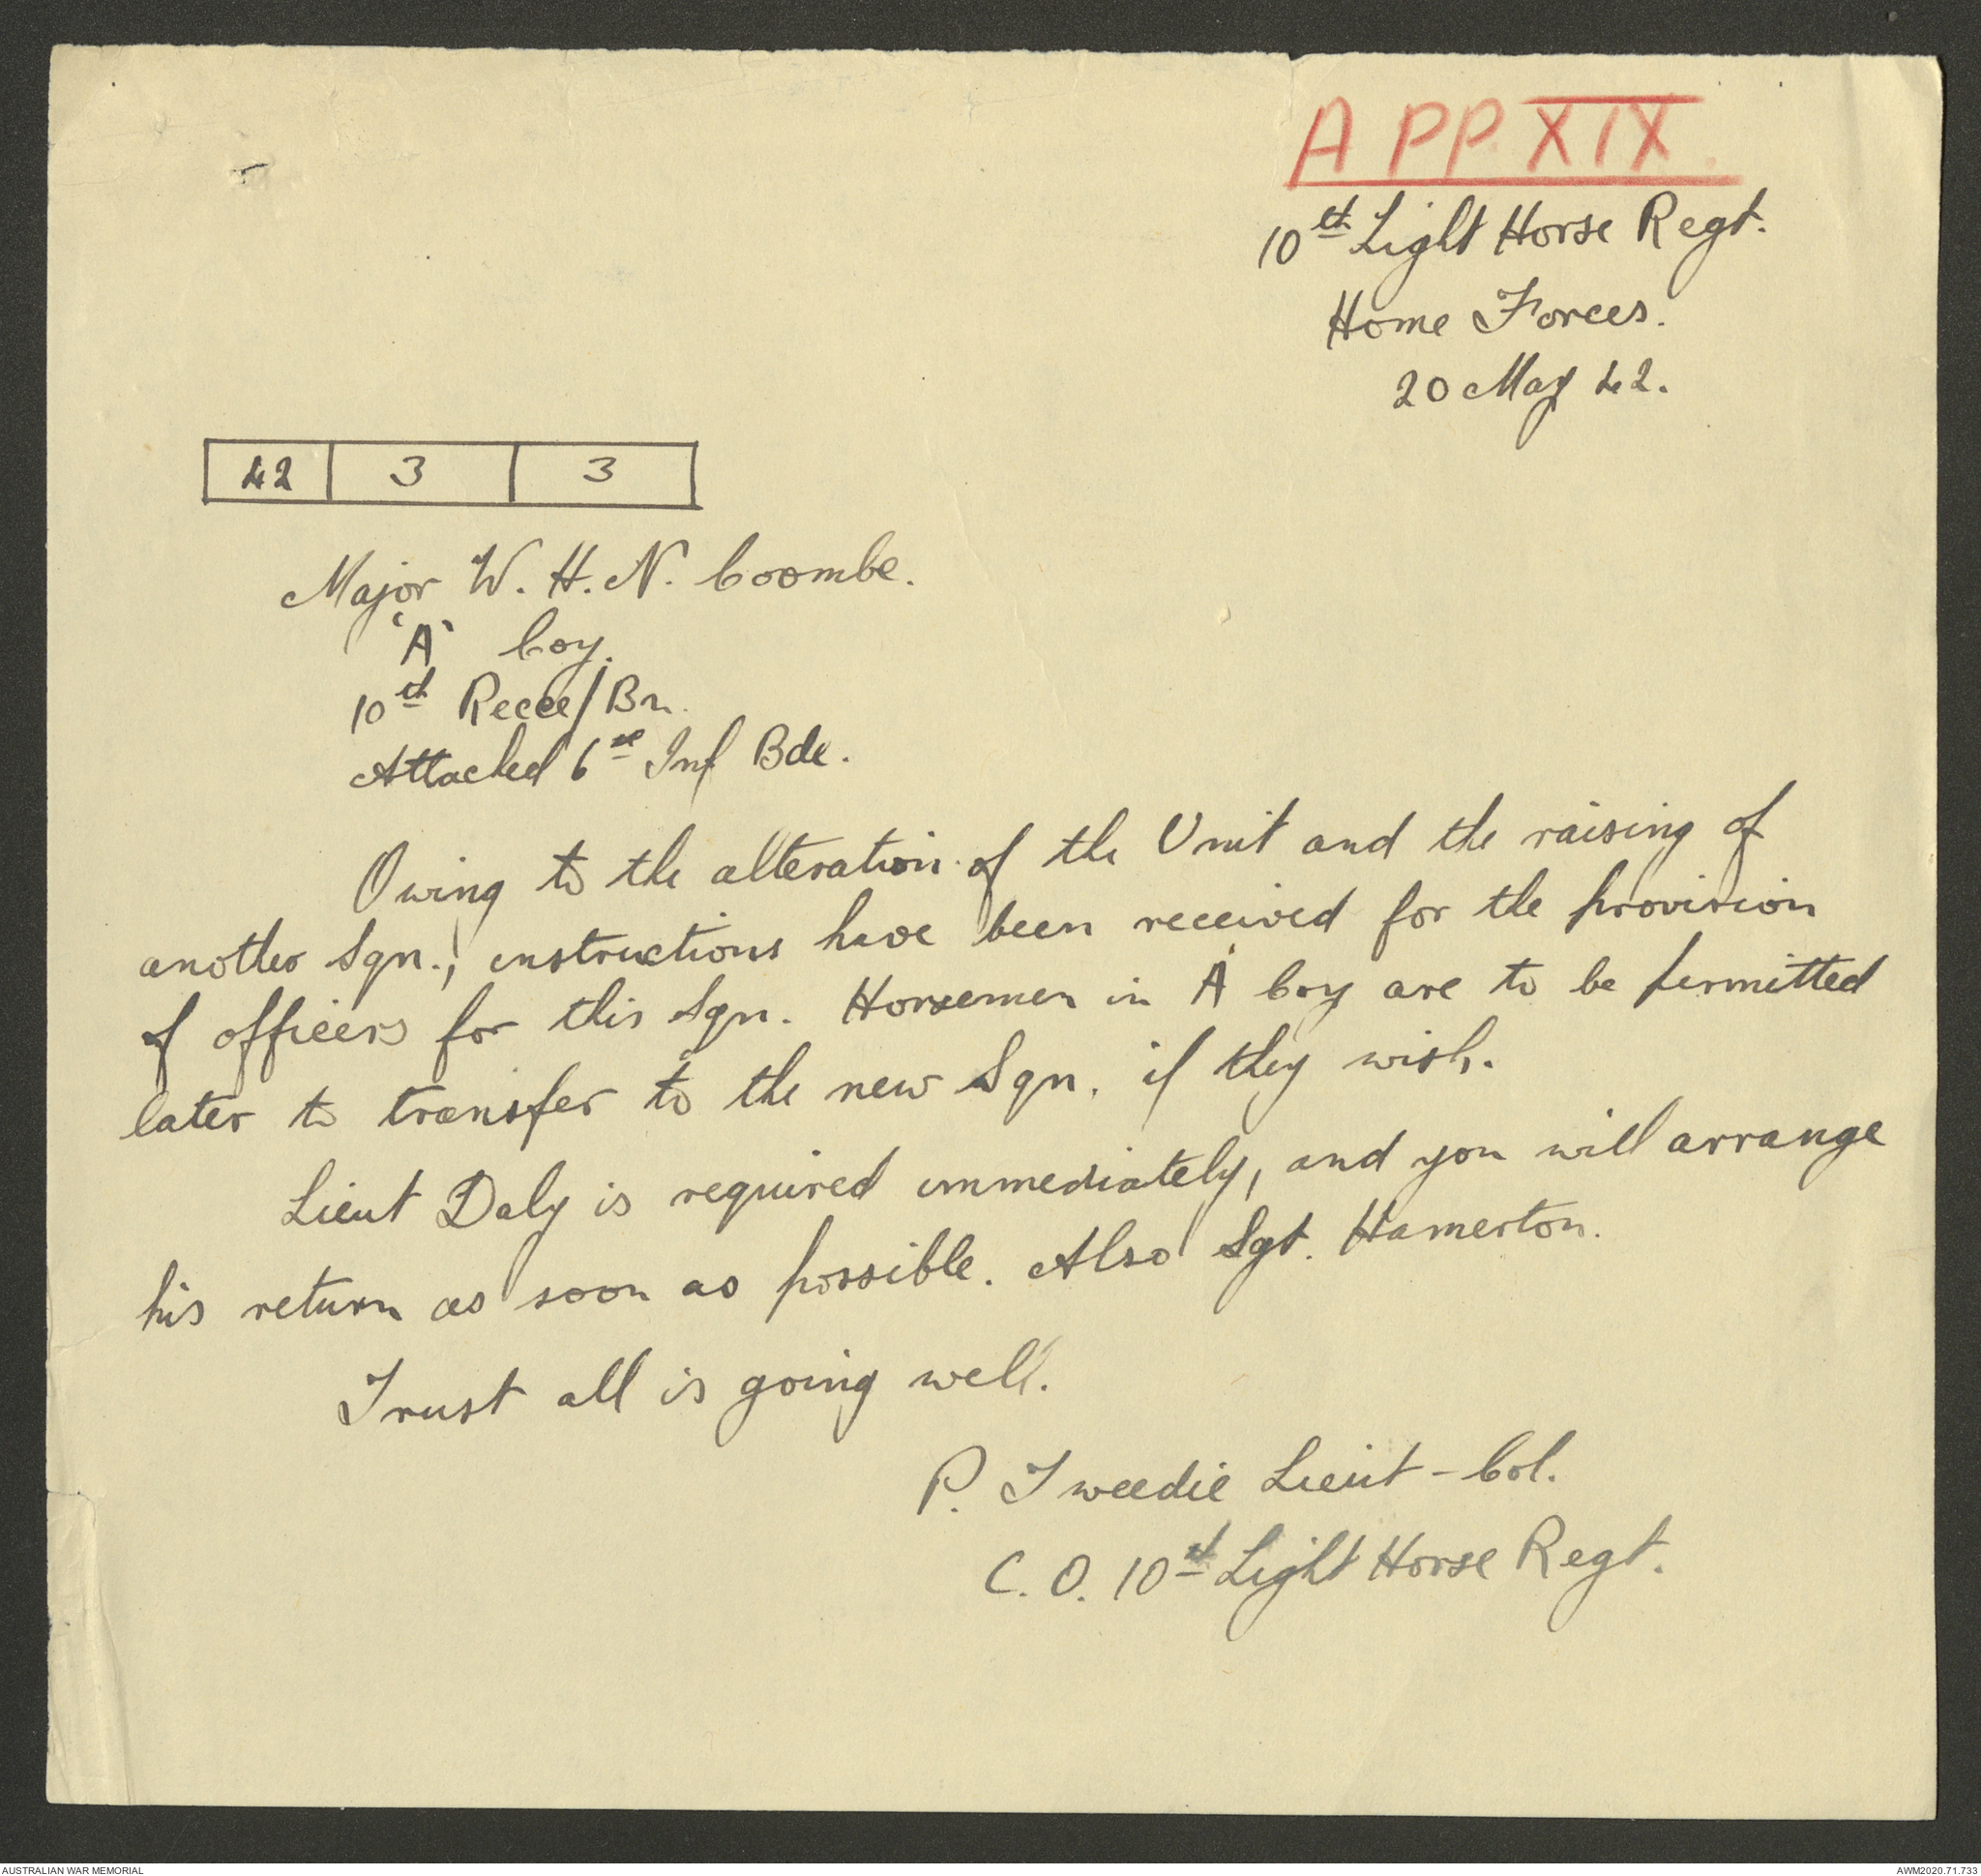 APP XIX.
10th Light Horse Regt.
Home Forces.
20 May 42.
42 3 3
Major W. H. N. Coombe.
'A' Coy.
10th Recce/Bn.
Attached 6th Inf Bde.
Owing to the alteration of the Unit and the raising of
another Sqn., instructions have been received for the provision
of officers for this Sqn. Horsemen in A Coy are to be permitted
later to transfer to the new Sqn. if they wish.
Lieut Daly is required immediately, and you will arrange
his return as soon as possible. Also Sgt. Hamerton.
Trust all is going well.
P. Tweedie Lieut-Col.
C.O. 10th Light Horse Regt.
AUSTRALIAN WAR MEMORIAL
AWM2020.71.733